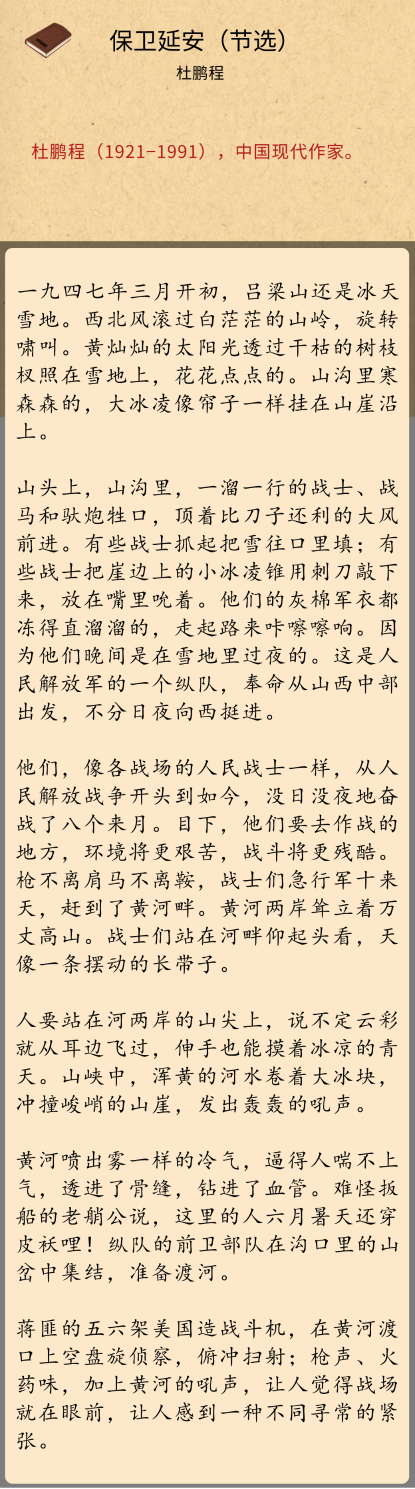 保卫延安（节选）
杜鹏程
杜鹏程（1921-1991），中国现代作家。
一九四七年三月开初，吕梁山还是冰天
雪地。西北风滚过白茫茫的山岭，旋转
啸叫。黄灿灿的太阳光透过干枯的树枝
杈照在雪地上，花花点点的。山沟里寒
森森的，大冰凌像帘子一样挂在山崖沿
上。
山头上，山沟里，一溜一行的战士、战
马和驮炮牲口，顶着比刀子还利的大风
前进。有些战士抓起把雪往口里填；有
些战士把崖边上的小冰凌锥用刺刀敲下
来，放在嘴里吮着。他们的灰棉军衣都
冻得直溜溜的，走起路来咔嚓嚓响。因
为他们晚间是在雪地里过夜的。这是人
民解放军的一个纵队，奉命从山西中部
出发，不分日夜向西挺进。
他们，像各战场的人民战士一样，从人
民解放战争开头到如今，没日没夜地奋
战了八个来月。目下，他们要去作战的
地方，环境将更艰苦，战斗将更残酷。
枪不离肩马不离鞍，战士们急行军十来
天，赶到了黄河畔。黄河两岸耸立着万
丈高山。战士们站在河畔仰起头看，天
像一条摆动的长带子。
人要站在河两岸的山尖上，说不定云彩
就从耳边飞过，伸手也能摸着冰凉的青
天。山峡中，浑黄的河水卷着大冰块，
冲撞峻峭的山崖，发出轰轰的吼声。
黄河喷出雾一样的冷气，逼得人喘不上
气，透进了骨缝，钻进了血管。难怪扳
船的老艄公说，这里的人六月暑天还穿
皮袄哩！纵队的前卫部队在沟口里的山
岔中集结，准备渡河。
蒋匪的五六架美国造战斗机，在黄河渡
口上空盘旋侦察，俯冲扫射；枪声、火
药味，加上黄河的吼声，让人觉得战场
就在眼前，让人感到一种不同寻常的紧
张。